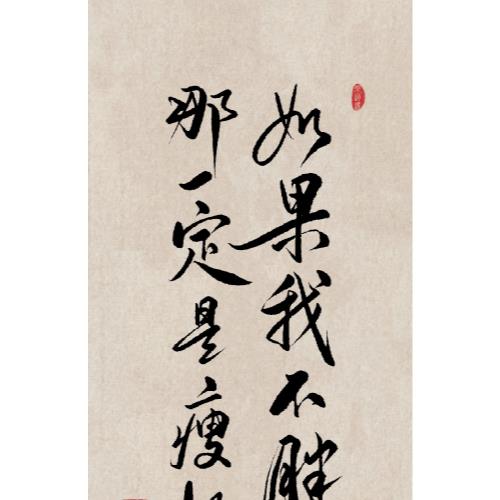 如果我不胖
那一定是瘦